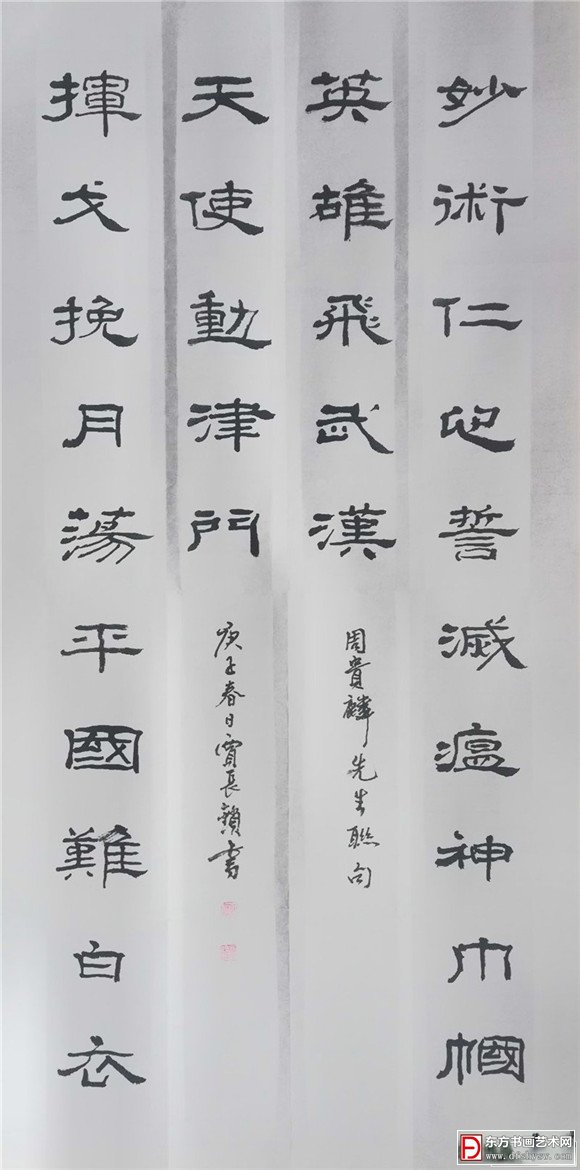 妙術仁心誓滅瘟神巾幗
英雄飛武漢
周貴麟先生聯句
揮戈挽月蕩平國難白衣
天使動津門
庚子春日賈長穎書
东方书画艺术网
www.dfshysw.com